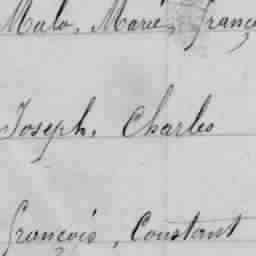 Malo, Marie, Franço
Joseph, Charles
François, Constant